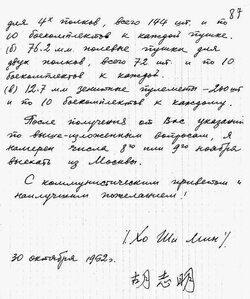 87
для 4х полков, всего 144 шт. и по
10 боекомплектов к каждой пушке.
(б) 76.2 мм. полевые пушки для
двух полков, всего 72 шт. и по 10
боекомплектов к каждой.
(в) 12.7 мм зенитные пулеметы - 200 шт
и по 10 боекомплектов к каждому.
После получения от Вас указаний
по выше-изложенным вопросам, я
намерен числа 8го или 9го ноября
выехать из Москвы.
С коммунистическим приветом и
наилучшим пожеланием!
/ Хо Ши Мин /
30 октября 1952г.
胡志明